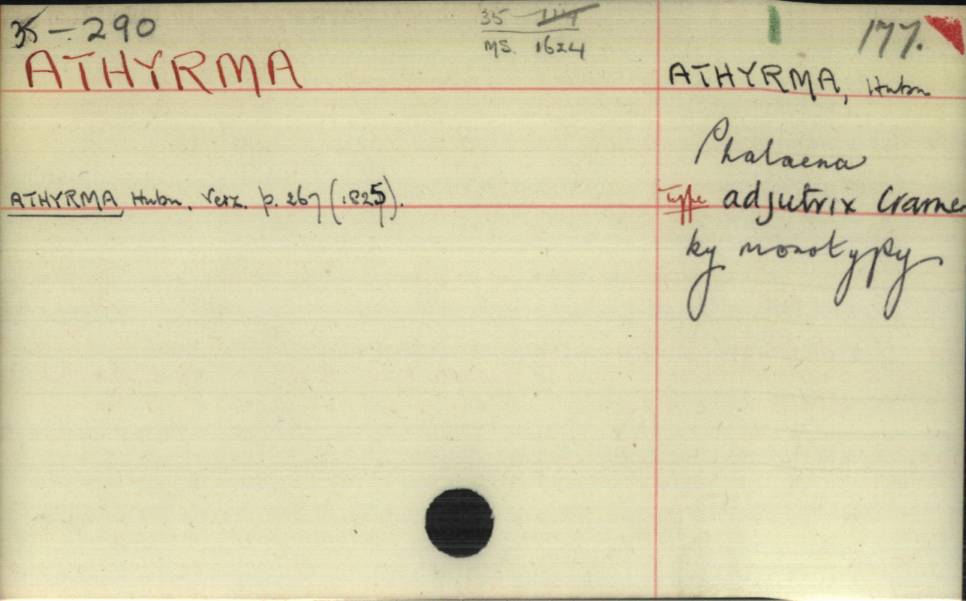 35 - 290
35
MS. 1624
177.
ATHYRMA
ATHYRMA, Hubn
Phalaena
ATHYRMA Hubn. Verz. p. 267 (1825).
Type adjutrix Cramer
by monotypy